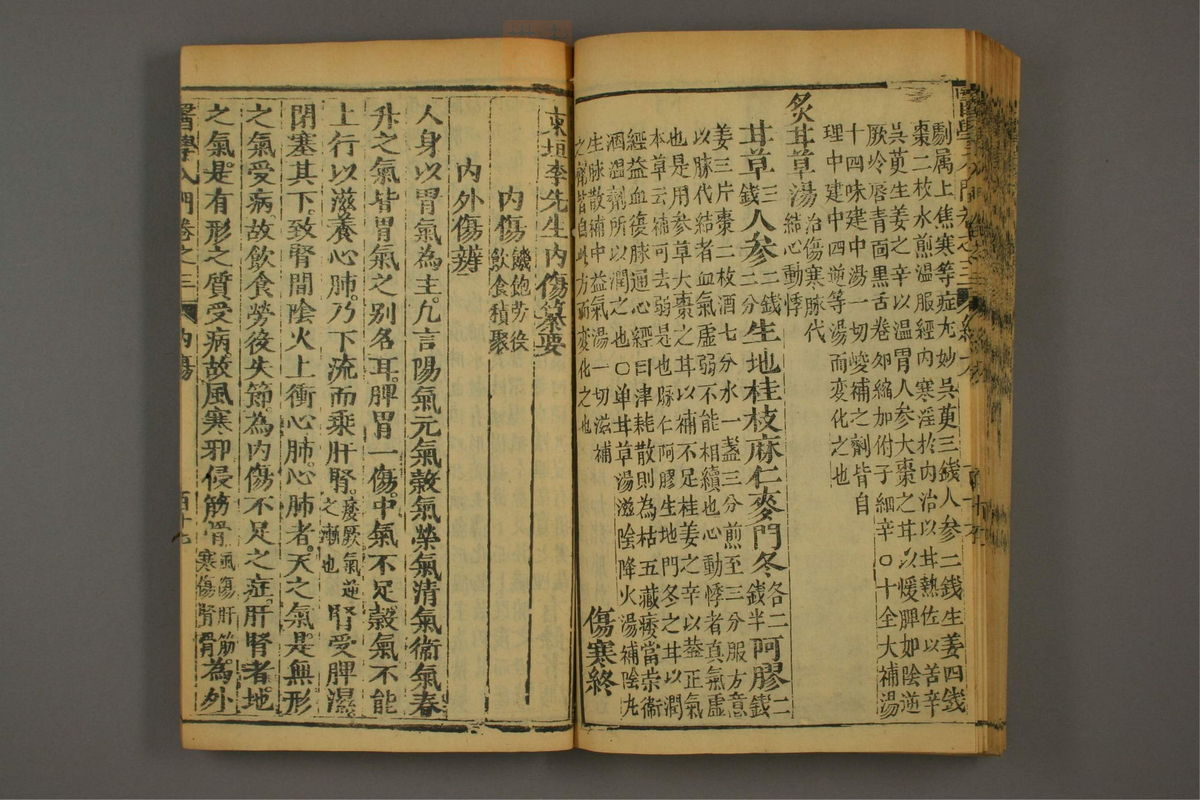 劇属上焦寒等症尤妙吳萸三錢人參二錢生姜四錢
棗二枚水煎温服經内寒淫於内治以甘熱佐以苦辛
吳萸生姜之辛以温胃人参大棗之甘以煖脾如陰逆
厥冷唇青面黒舌卷夘縮加附子細辛〇十全大補湯
十四味建中湯一切峻補之劑皆自
理中建中四逆等湯而變化之也
炙甘草湯治傷寒脉代
結心動悸
甘草三錢人参二錢二分生地桂枝麻仁麥門冬各二錢半阿膠二錢
姜三片棗二枚酒七分水一盞三分煎至三分服方意
以脉代結者血氣虚弱不能相續也心動悸者真氣虚
也是用参草大棗之甘以補不足桂姜之辛以益正氣
本草云補可去弱是也麻仁阿膠生地門冬之甘以潤
經益血復脉通心經曰津耗散則為枯五藏痿當榮衞
酒温劑所以潤之也〇单甘草湯滋陰降火湯補陰丸
生脉散補中益氣湯一切滋補
之劑皆自此方而變化之也
傷寒終
東垣李先生内傷纂要
内傷 饑飽劳役
飲食積聚
内外傷辨
人身以胃氣為主凢言陽氣元氣穀氣榮氣清氣衞氣春
升之氣皆胃氣之别名耳脾胃一傷中氣不足穀氣不能
上行以滋養心肺乃下流而乘肝腎痿厥氣逆之漸也腎受脾濕
閉塞其下致腎間陰火上衝心肺心肺者天之氣是無形
之氣受病故飲食勞役失節為内傷不足之症肝腎者地
之氣是有形之質受病故風寒邪侵筋骨風傷肝筋寒傷腎骨為外
醫學入門卷之三 内傷 百十七